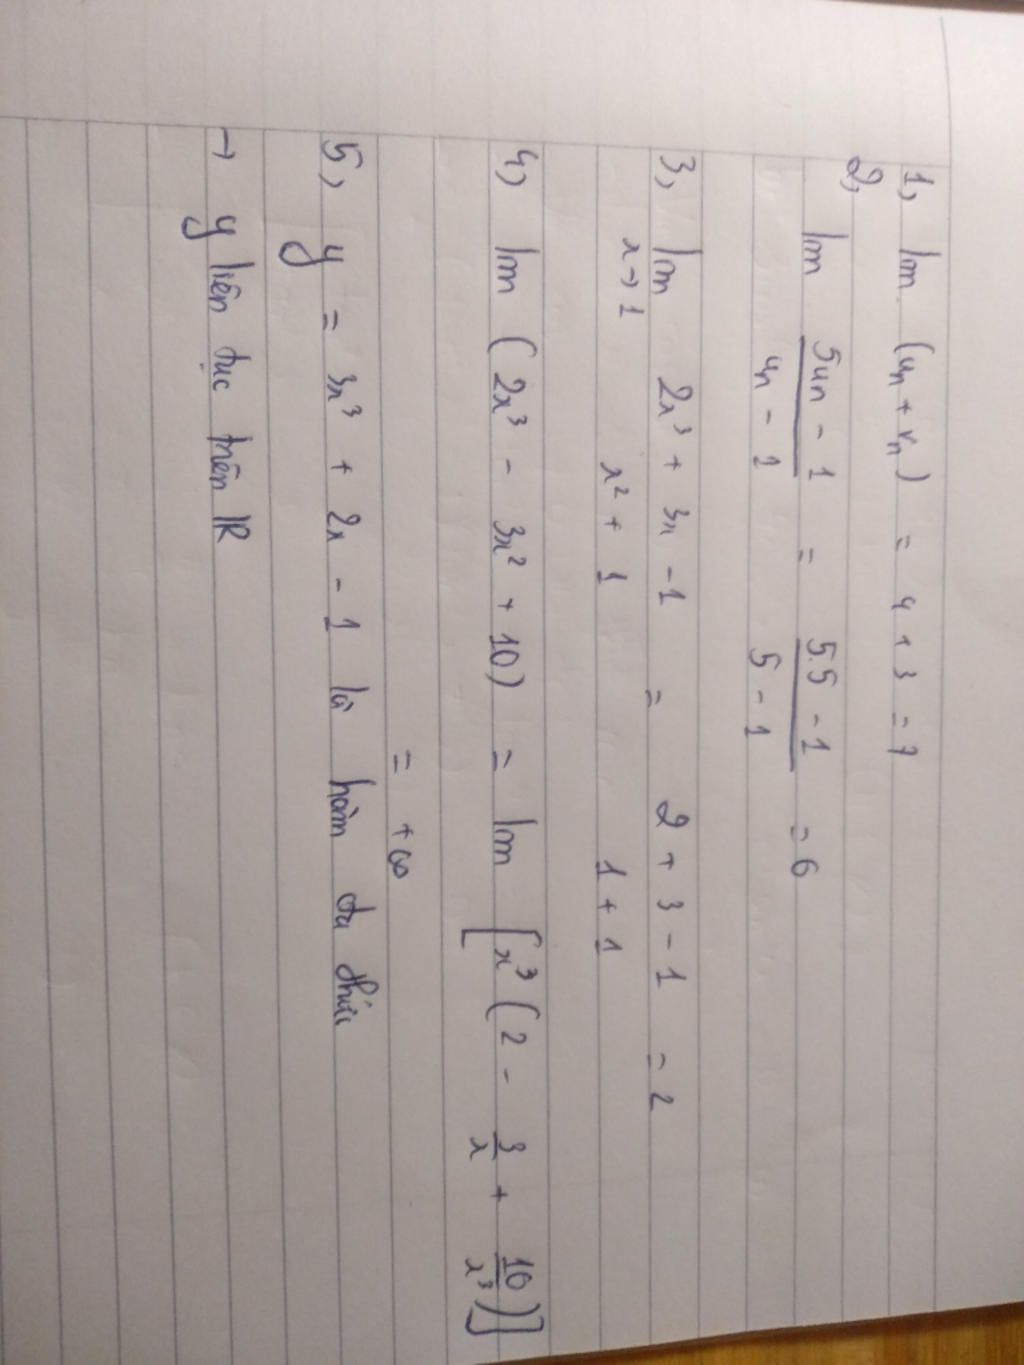 1, lim (un + vn) = 4 + 3 = 7
2,
lim (5un - 1)/(un - 1) = (5.5 - 1)/(5 - 1) = 6
3, lim 2x³ + 3x - 1 = 2 + 3 - 1 = 2
x→1 x² + 1 1 + 1
4, lim (2x³ - 3x² + 10) = lim [x³(2 - 3/x + 10/x³)]
= +∞
5, y = 3x³ + 2x - 1 là hàm đa thức
→ y liên tục trên IR